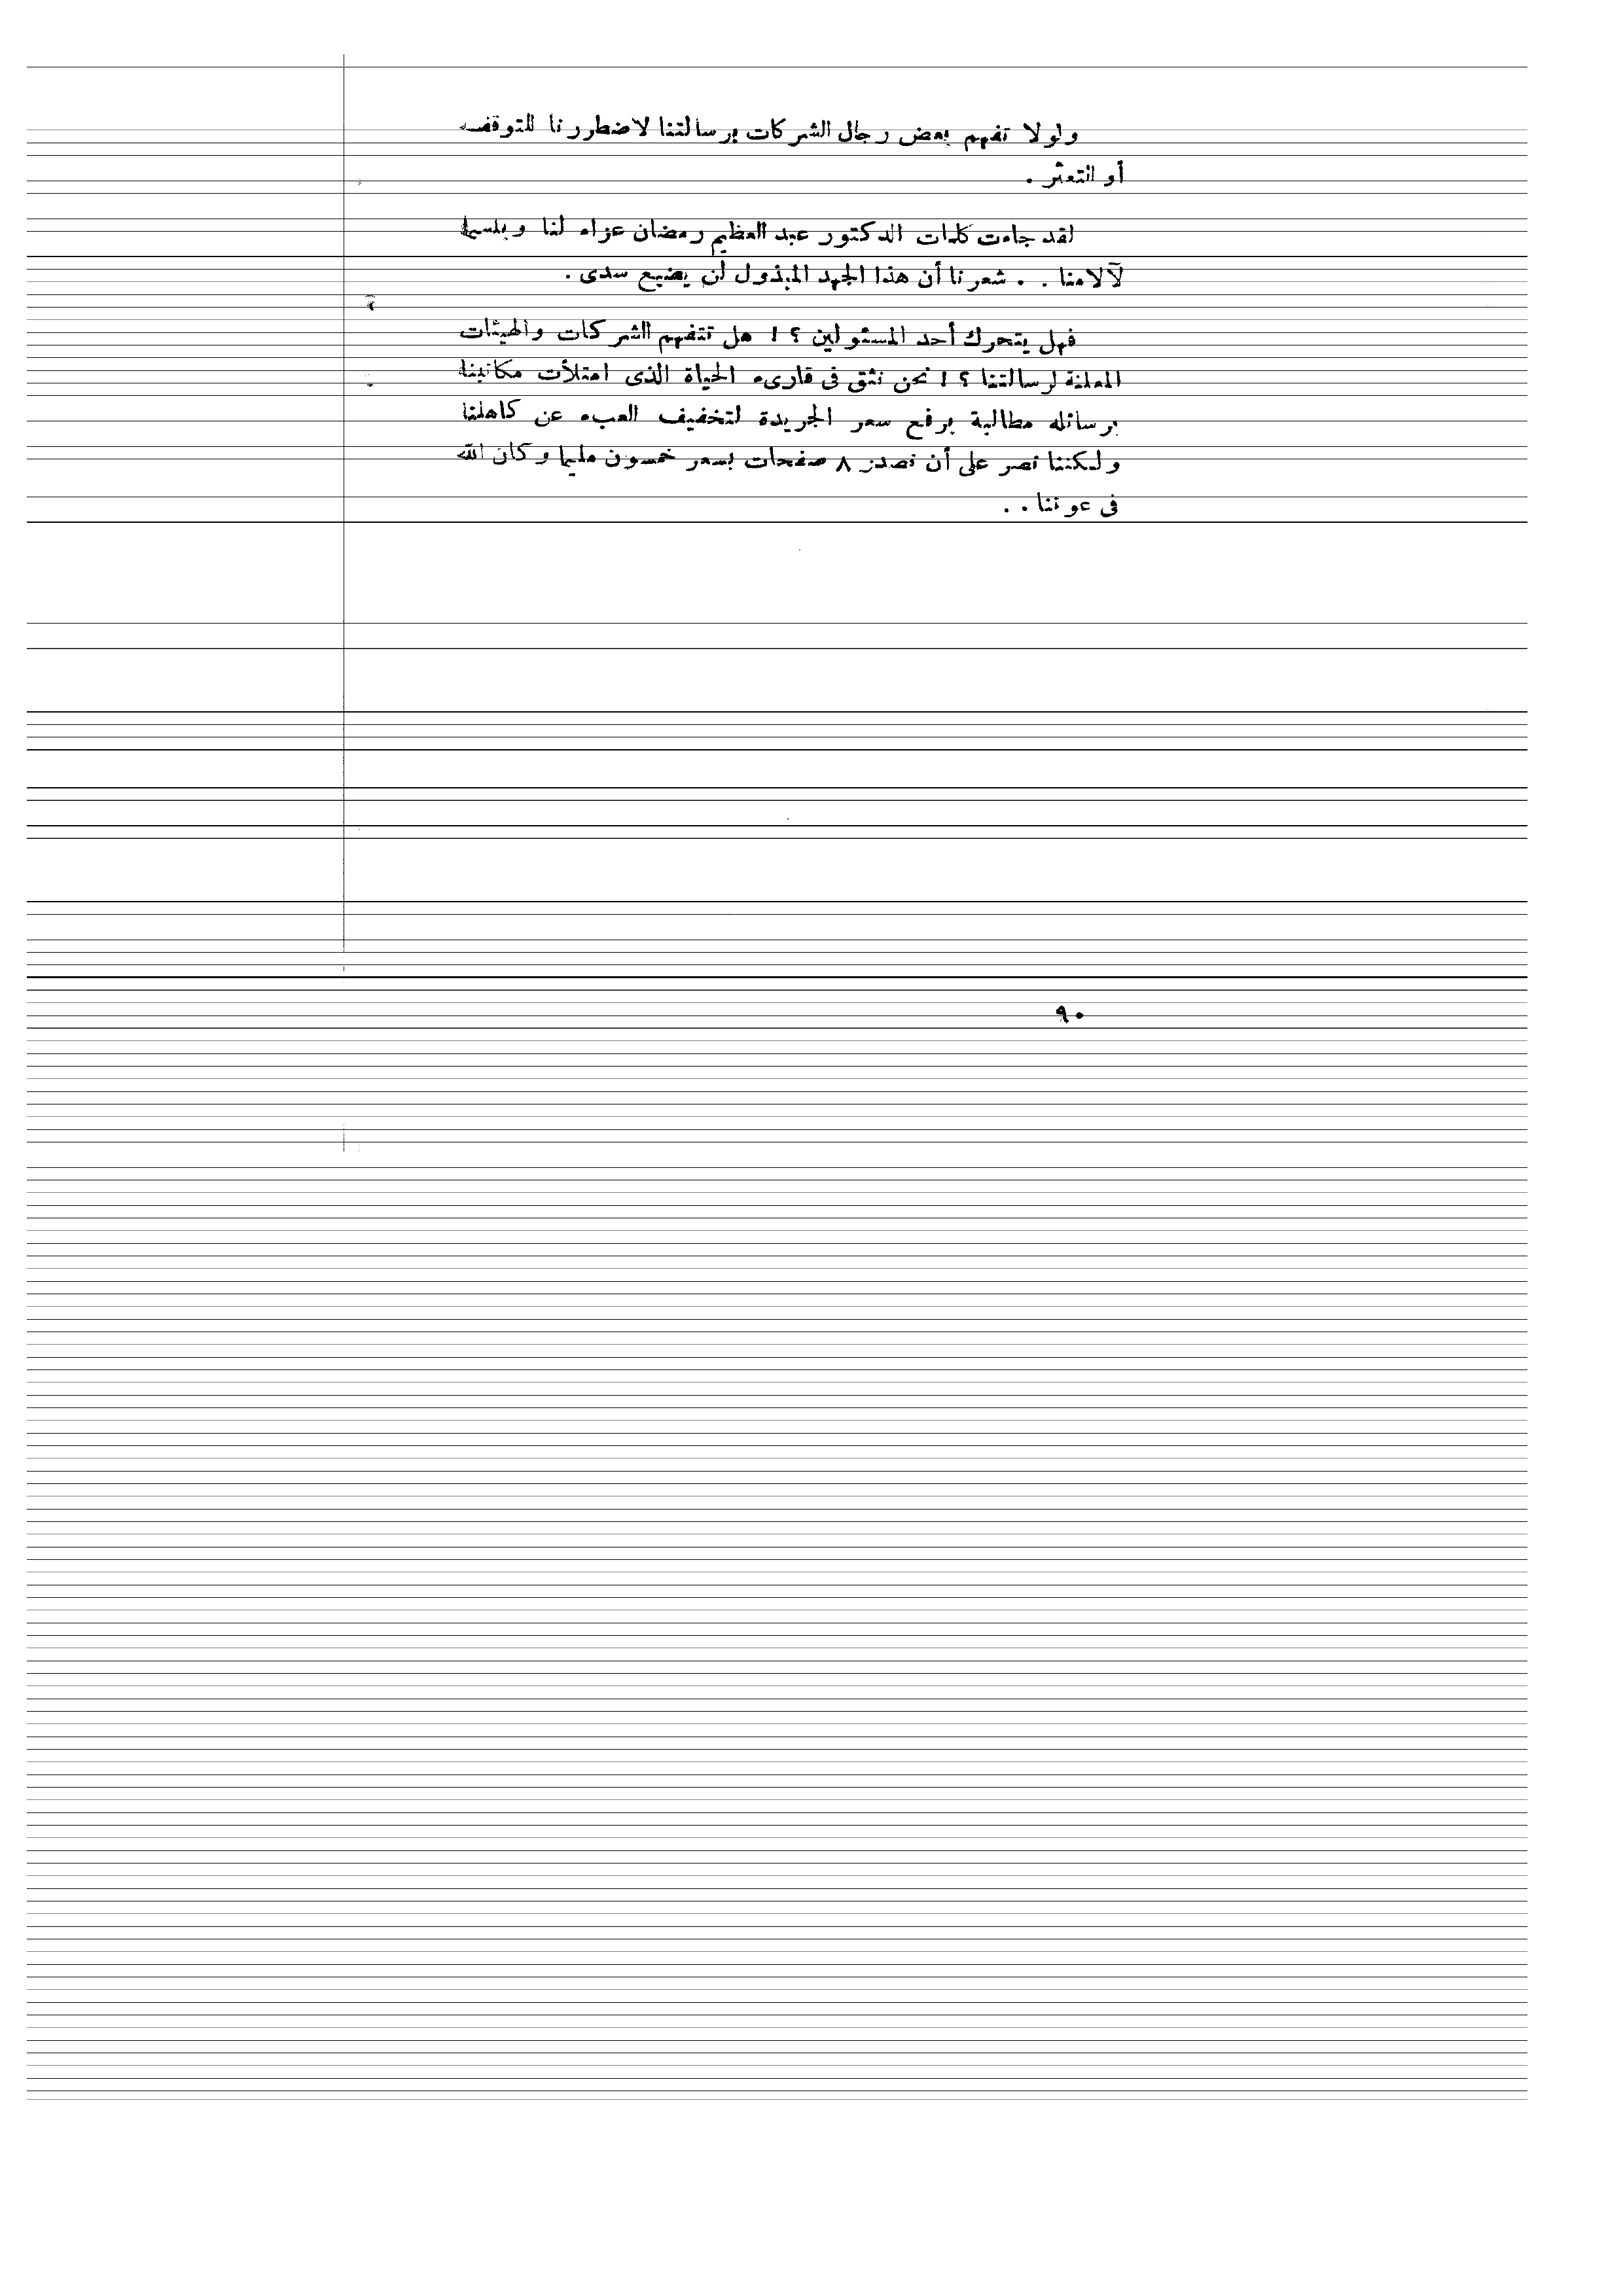 ولولا تفهم بعض رجال الشركات برسالتنا لاضطررنا للتوقف
أو التعثر .
لقد جاءت كلمات الدكتور عبد العظيم رمضان عزاء لنا وبلسما
لآلامنا . . شعرنا أن هذا الجهد المبذول لن يضيع سدى .
فهل يتحرك أحد المسئولين ؟ ! هل تتفهم الشركات والهيئات
المعلنة لرسالتنا ؟ ! نحن نثق فى قارىء الحياة الذى امتلأت مكاتبنا
برسائله مطالبة برفع سعر الجريدة لتخفيف العبء عن كاهلنا
ولكننا نصر على أن نصدر ٨ صفحات بسعر خمسون مليما وكان الله
فى عوننا . .
٩٠